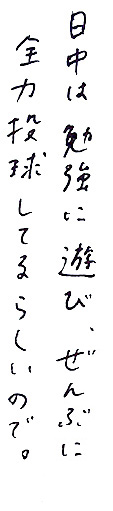 日中は勉強に遊び、ぜんぶに
全力投球してるらしいので。